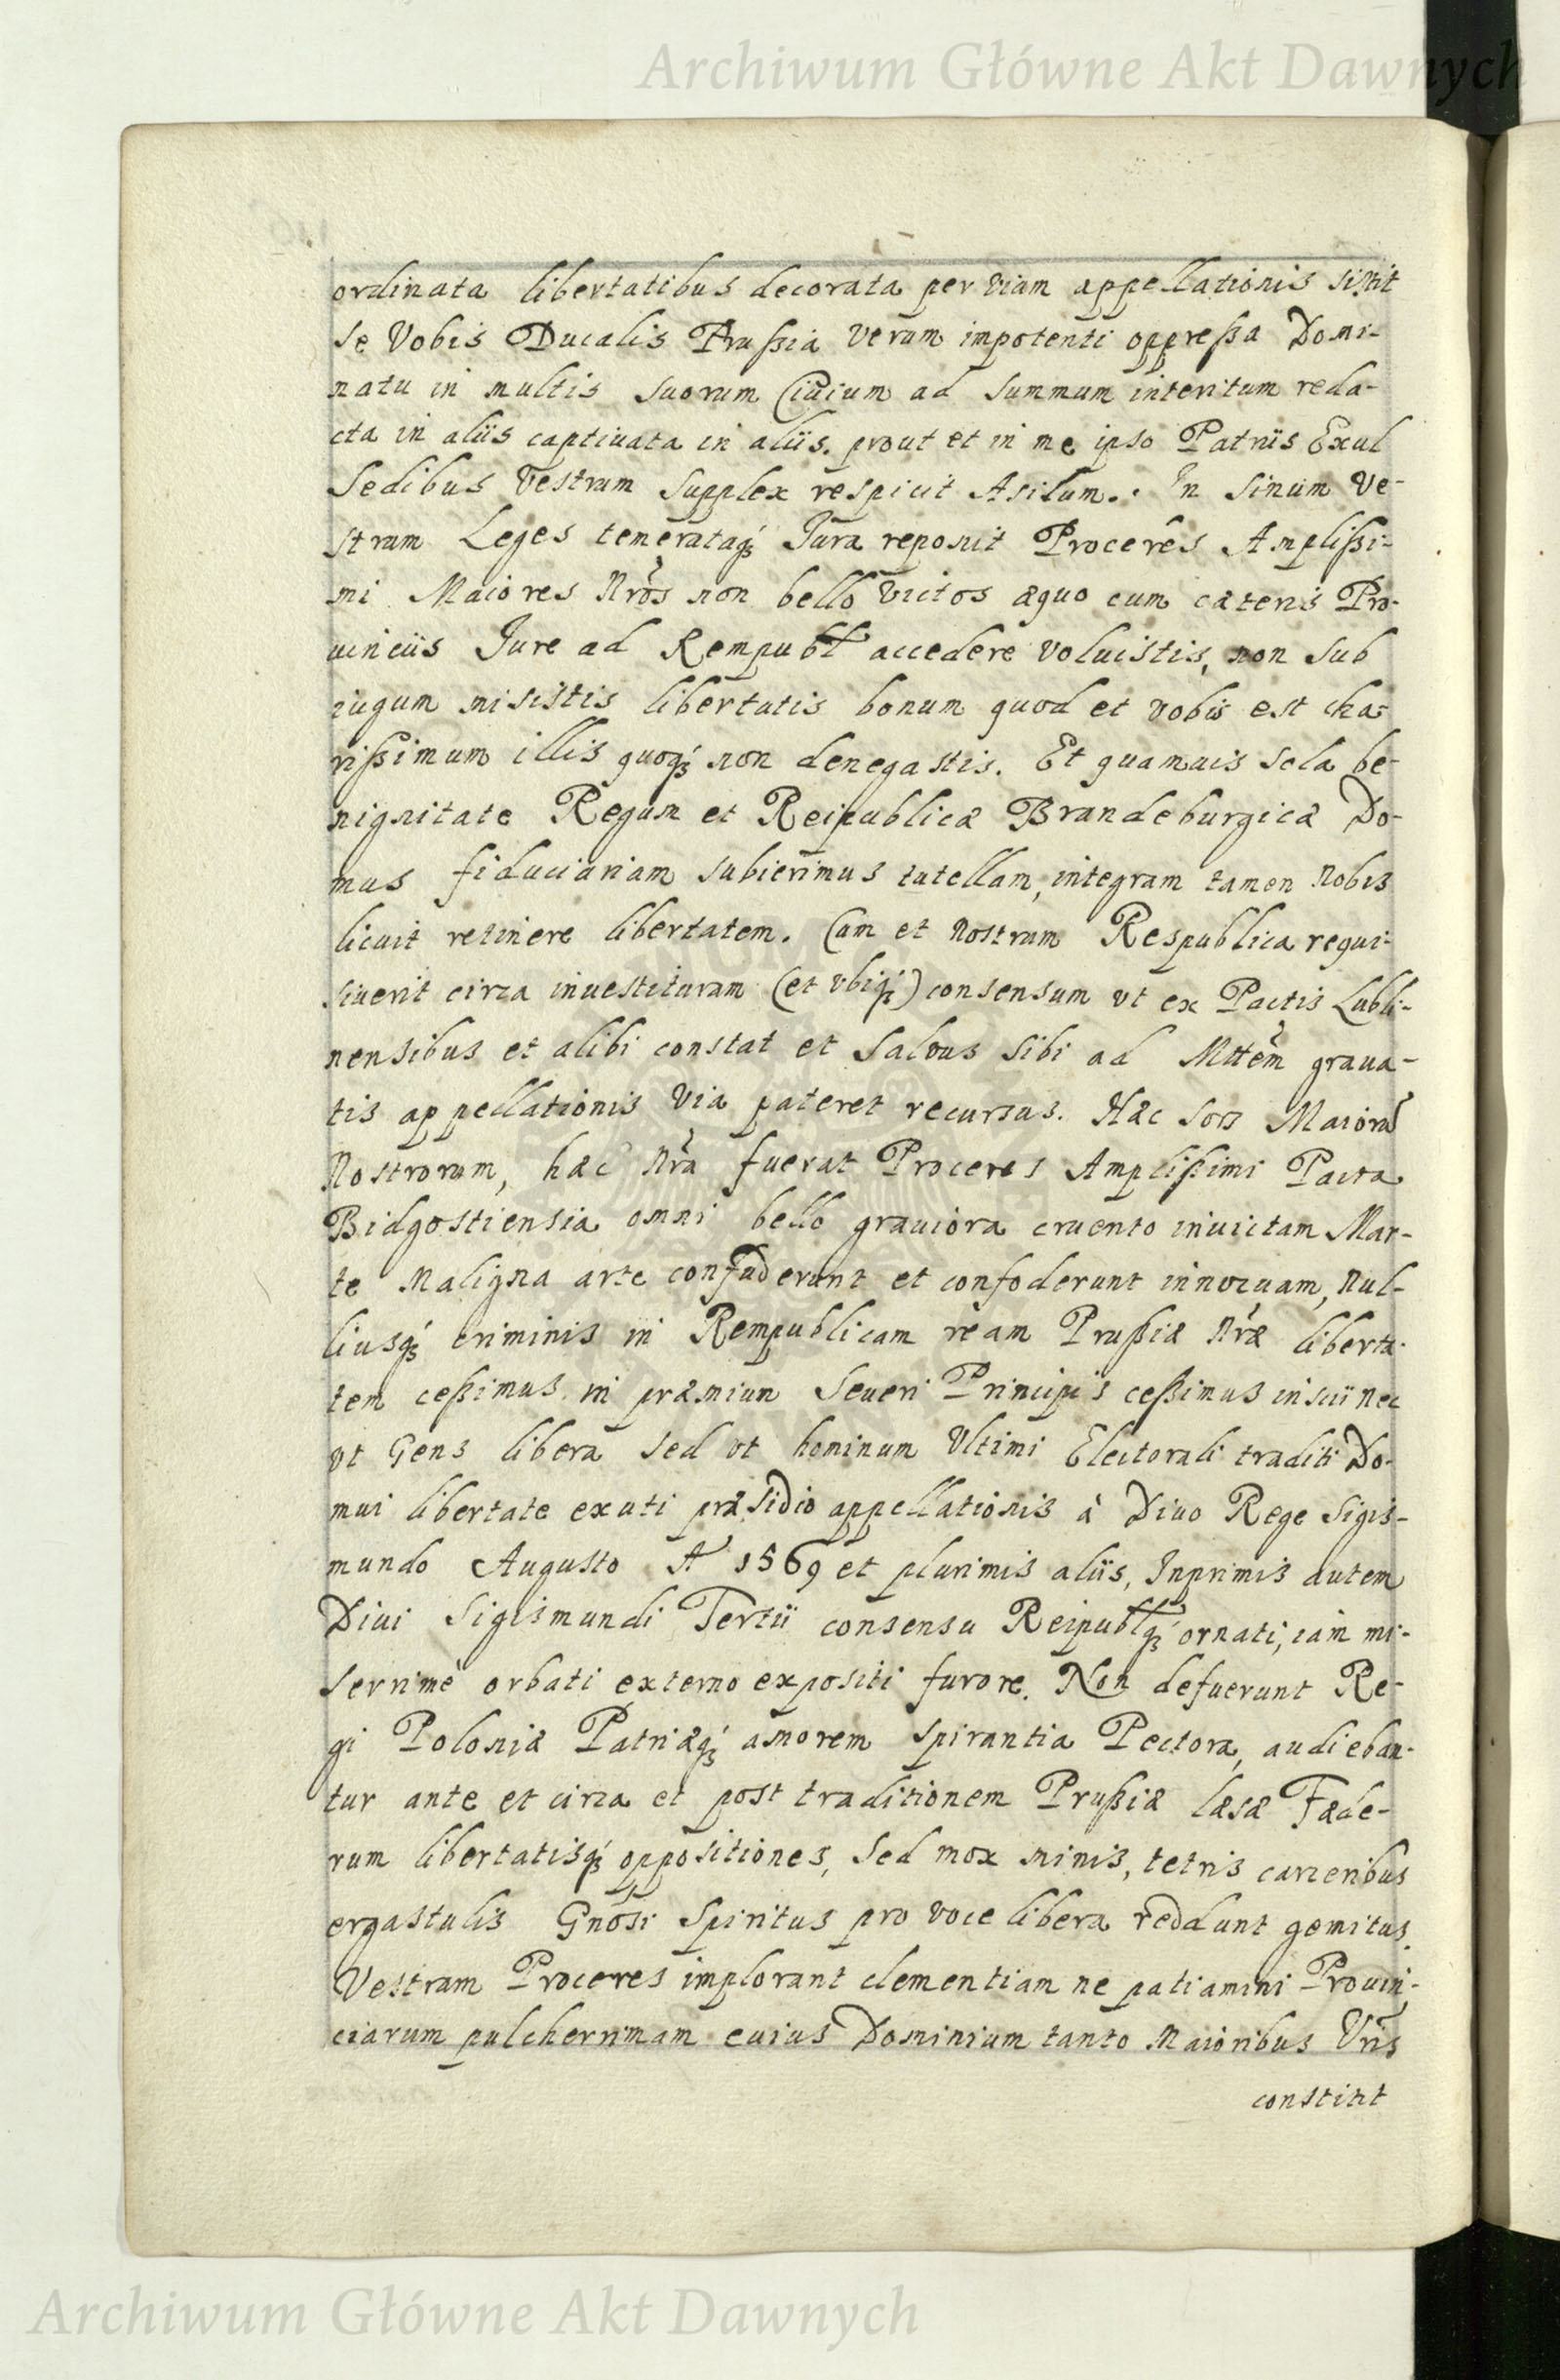 Archiwum Główne Akt Dawnych
ordinata libertatibus decorata per viam appellationis sistit
se Vobis Ducalis Prussia verum impotenti oppressa Domi-
natu in multis suorum Civium ad summum interitum reda-
cta in aliis captivata in aliis. prout et in me ipso Patriis Exul
Sedibus Vestrum supplex respicit Asilum.. In sinum Ve-
strum Leges temerataq́ꝫ Jura reposuit Procerês Amplissi-
mi Maiores Nrõs non bello victos æquo cum cæteris Pro-
vinciis Jure ad Rempubl accedere voluistis, non sub
iugum misistis libertatis bonum quod et vobis est cha-
rissimum illis quoq́ꝫ non denegastis. Et quamuis sola be-
nignitate Regum et Reipublicæ Brandeburgicæ Do-
mus fiduciariam subierimus tutellam, integram tamen Nobis
licuit retinere libertatem. Cum et Nostrum Respublica requi-
siuerit circa inuestituram (et vbiq́ꝫ) consensum vt ex Pactis Lubli-
nensibus et alibi constat et Salvus sibi ad Mttẽm graua-
tis appellationis via pateret recursus. Hæc sors Maiorũ
Nostrorum, hæc Nrã fuerat Proceres Amplissimi Pacta
Bidgostiensia omni bello grauiora cruento inuictam Mar-
te Maligna arte confuderunt et confoderunt innocuam, Nul-
liusq́ꝫ criminis in Rempublicam ream Prussiæ Nrãe liberta-
tem cessimus in præmium Seueri Principis cessimus inscii nec
vt Gens libera sed vt hominum Vltimi Electorali traditi Do-
mui libertate exuti præsidio appellationis à Diuo Rege Sigis-
mundo Augusto Aͦ 1569 et plurimis aliis, Inprimis autem
Diui Sigismundi Tertii consensu Reipublq́ꝫ ornati, iam mi-
serrimè orbati externo expositi furore. Non defuerunt Re-
gi Poloniæ Patriæq́ꝫ amorem spirantia Pectora, audieban-
tur ante et circa et post traditionem Prussiæ læsæ Fæde-
rum libertatisq́ꝫ oppositiones, sed mox minis, tetris carceribus
ergastulis Gnõsi Spiritus pro voce libera reddunt gemitus.
Vestram Proceres implorant clementiam ne patiamini Provin-
ciarum pulcherrimam cuius Dominium tanto Maioribus Vrĩs
constitit
Archiwum Główne Akt Dawnych